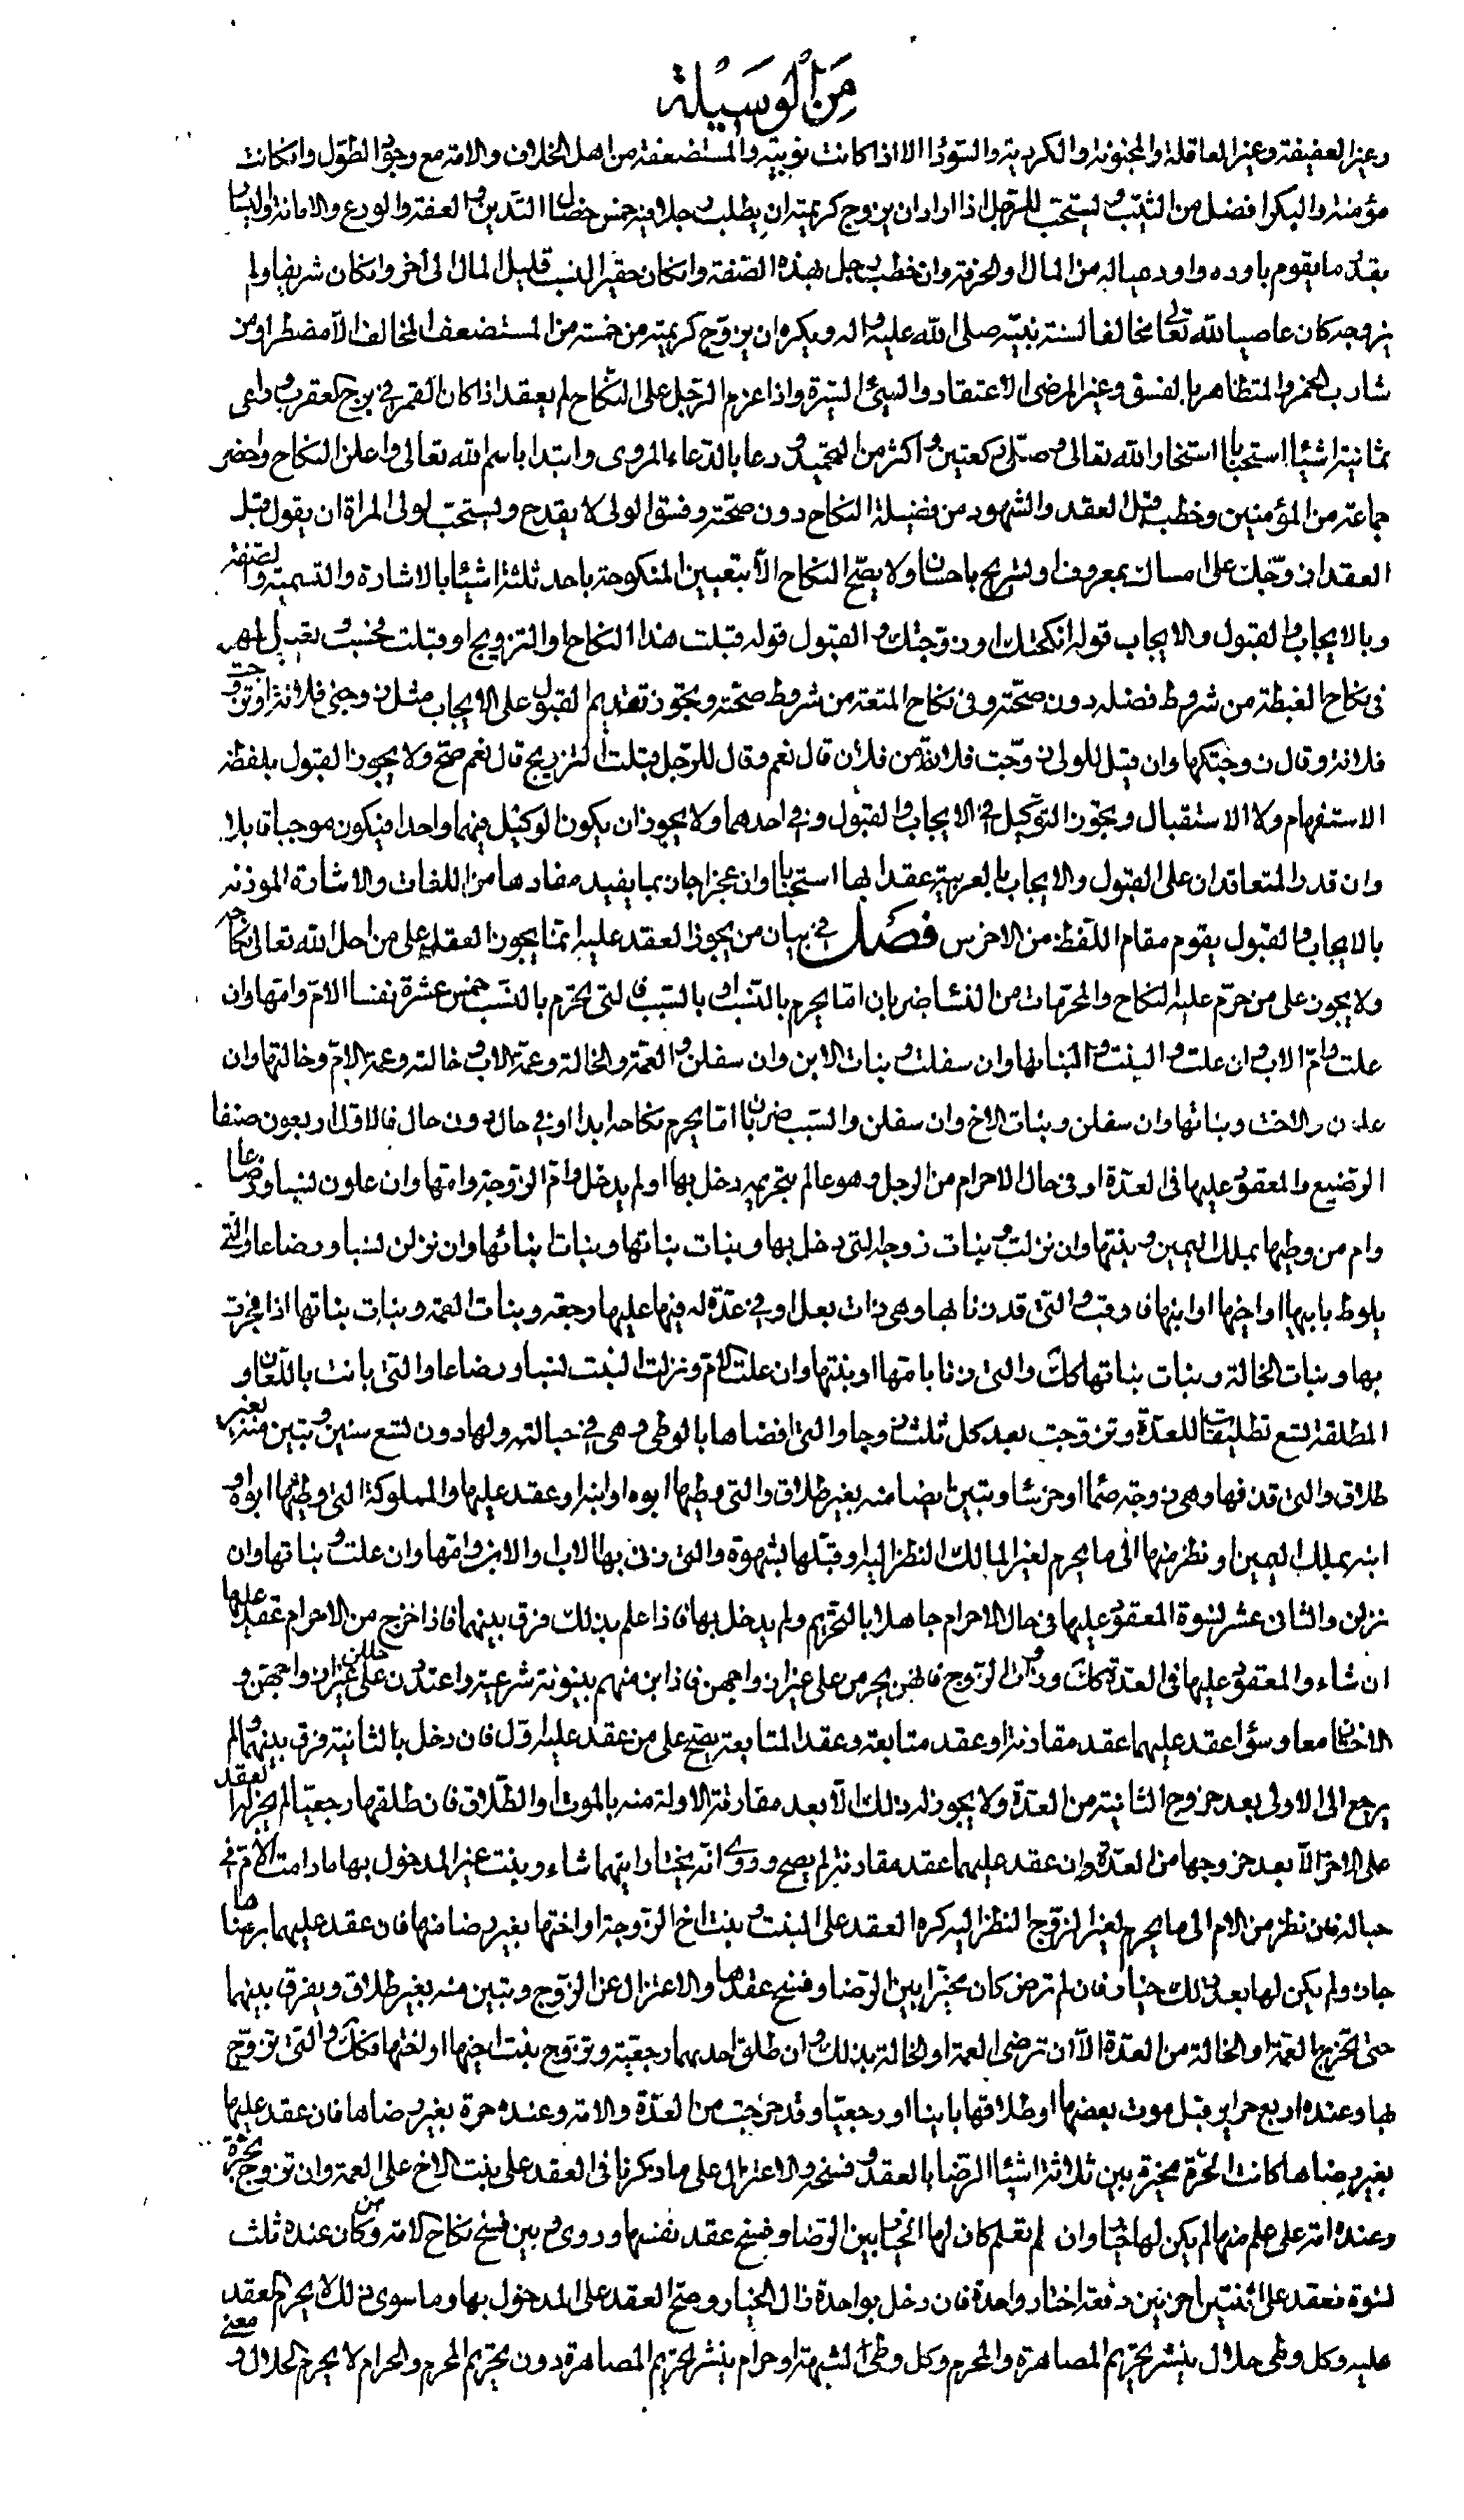 من الوسيلة
وغير العفيفة وغير العاقلة والمجنونة والكردية والسوداء الا اذا كانت نوبية والمستضعفة من اهل الخلاف والامة مع وجود الطول وان كانت
مؤمنة والبكر افضل من الثيب ويستحب للرجل اذا اراد ان يزوج كريمته ان يطلب رجلا فيه خمس خصال التدين والعفة والورع والامانة واليسار
بقدر ما يقوم باوده واود عياله من المال والحرفة وان خطب رجل بهذه الصفة وان كان حقير النسب قليل المال الى اخر وان كان شريفا ولم
يزوجه كان عاصيا لله تعالى مخالفا لسنة نبيه صلى الله عليه واله ويكره ان يزوج كريمته من خمسة من المستضعف المخالف الا مضطرا ومن
شارب الخمر والمتظاهر بالفسق وغير المرضى الاعتقاد والسيئ السيرة واذا عزم الرجل على النكاح لم يعقد اذا كان القمر في برج العقرب وراعى
ثمانية اشياء استحبابا استخار الله تعالى وصلى ركعتين واكثر من التحميد ودعا بالدعاء المروى وابتدا باسم الله تعالى واعلن النكاح واحضر
جماعة من المؤمنين وخطب قبل العقد والشهود من فضيلة النكاح دون صحته وفسق الولى لا يقدح ويستحب لولى المراة ان يقول قبل
العقد ازوجك على امساك بمعروف او تسريح باحسان ولا يصح النكاح الا بتعيين المنكوحة باحد ثلثة اشياء بالاشارة والتسمية والصفة
وبالايجاب والقبول والايجاب قوله انكحتك او زوجتك والقبول قوله قبلت هذا النكاح او التزويج او قبلت فحسب وتعيين المهر
فى نكاح الغبطة من شروط فضله دون صحته وفى نكاح المتعة من شروط صحته ويجوز تقديم القبول على الايجاب مثل زوجنى فلانة او تزوجت
فلانة وقال زوجتكها وان قيل للولى زوجت فلانة من فلان قال نعم وقال للرجل قبلت التزويج قال نعم صح ولا يجوز القبول بلفظة
الاستفهام ولا الاستقبال ويجوز التوكيل في الايجاب والقبول وفي احدهما ولا يجوز ان يكون الوكيل فيهما واحدا فيكون موجبا قابلا
وان قدر المتعاقدان على القبول والايجاب بالعربية عقدا بها استحبابا وان عجزا جاز بما يفيد مفادها من اللغات والاشارة الموذنة
بالايجاب والقبول يقوم مقام اللفظ من الاخرس فصل في بيان من يجوز العقد عليه انما يجوز العقد على من احل الله تعالى نكاحه
ولا يجوز على من حرم عليه النكاح والمحرمات من النساء ضربان اما يحرم بالنسب او بالسبب فالتى يحرم بالنسب خمس عشرة نفسا الام وامها وان
علت وام الاب وان علت والبنت والبناتها وان سفلت وبنات الابن وان سفلن والعمة والخالة وعمة الاب وخالته وعمة الام وخالتها وان
علون والاخت وبناتها وان سفلن وبنات الاخ وان سفلن والسبب ضربان اما يحرم نكاحه ابدا او في حال دون حال فالاول اربعون صنفا
الرضيع والمعقود عليها فى العدة او فى حال الاحرام من الرجل وهو عالم بتحريمه دخل بها او لم يدخل وام الزوجة وامها وان علون نسبا ورضاعا
وام من وطيها بملك اليمين وبنتها وان نزلت وبنات زوجة التى دخل بها وبنات بناتها وبنات بنائها وان نزلن نسبا ورضاعا والتي
يلوط بابيها او اخيها او ابنها فاوقب والتى قد زنا بها وهى ذات بعل او في عدة له فيها عليها رجعة وبنات العمة وبنات بناتها اذا فجرت
بها وبنات الخالة وبنات بناتها كك والتى زنا بامها او بنتها وان علت الام ونزلت البنت نسبا ورضاعا والتى بانت باللعان او
المطلقة تسع تطليقات للعدة وتزوجت بعد كل ثلث زوجا والتى افضاها بالوطى وهى في حبالته ولها دون تسع سنين وتبين منه بغير
طلاق والتى قذفها وهى زوجة صما او خرسا وتبين ايضا منه بغير طلاق والتى وطيها ابوه او ابنه او عقد عليها والمملوكة التى وطيها ابوه او
ابنه بملك اليمين او نظر منها الى ما يحرم لغير المالك النظر اليه او قبلها بشهوة والتى زنى بها الاب او الابن وامها وان علت وبناتها وان
نزلن والثانى عشر نسوة المعقود عليها فى حال الاحرام جاهلا بالتحريم ولم يدخل بها فاذا علم بذلك فرق بينهما فاذا خرج من الاحرام عقد عليها
ان شاء والمعقود عليها فى العدة كك وذوات الزوج فانهن يحرمن على غير ازواجهن فاذا بن منهم بينونة شرعية واعتددن حللن على غير ازواجهن و
الاختان معا وسواء عقد عليهما عقد مقارنة او عقد متابعة وعقد المتابعة يصح على من عقد عليه اول فان دخل بالثانية فرق بينهما ولم
يرجع الى الاولى بعد خروج الثانية من العدة ولا يجوز له ذلك الا بعد مفارقة الاولة منه بالموت او الطلاق فان طلقها رجعيا لم يجز لها العقد
على الاخرى الا بعد خروجها من العدة وان عقد عليهما عقد مقارنة لم يصح وروى انه يختار ايتهما شاء وبنت غير المدخول بها ما دامت الام في
حباله فان نظر من الام الى ما يحرم لغير الزوج النظر اليه كره العقد على البنت وبنت اخ الزوجة او اختها بغير رضا منها فان عقد عليهما برضاها
جاز ولم يكن لها بعد ذلك خيار فان لم ترض كان مخيرا بين الرضا وفسخ عقدها والاعتزال عن الزوج وتبين منه بغير طلاق ويفرق بينهما
حتى تخرج العمة او الخالة من العدة الا ان ترضى العمة او الخالة بذلك وان طلق احديهما رجعية وتزوج بنت اخيها او اختها فكك والتى تزوج
بها وعنده اربع حراير قبل موت بعضها او طلاقها باينا او رجعيا وقد خرجت من العدة والامة وعنده حرة بغير رضاها فان عقد عليها
بغير رضاها كانت الحرة مخيرة بين ثلاثة اشياء الرضا بالعقد وفسخه والاعتزال على ما ذكرنا فى العقد على بنت الاخ على العمة وان تزوج بحرة
وعنده امة على علم منها لم يكن لها خيار وان لم تعلم كان لها الخيار بين الرضا وفسخ عقد نفسها وروى وبين فسخ نكاح الامة ومن كان عنده ثلث
نسوة فعقد على اثنتين اخريين دفعة اختار واحدة فان دخل بواحدة زال الخيار وصح العقد على المدخول بها وما سوى ذلك لا يحرم العقد
عليه وكل وطى حلال ينشر تحريم المصاهرة والمحرم وكل وطى الشبهة او حرام ينشر تحريم المصاهرة دون تحريم المحرم والحرام لا يحرم الحلال و معنى